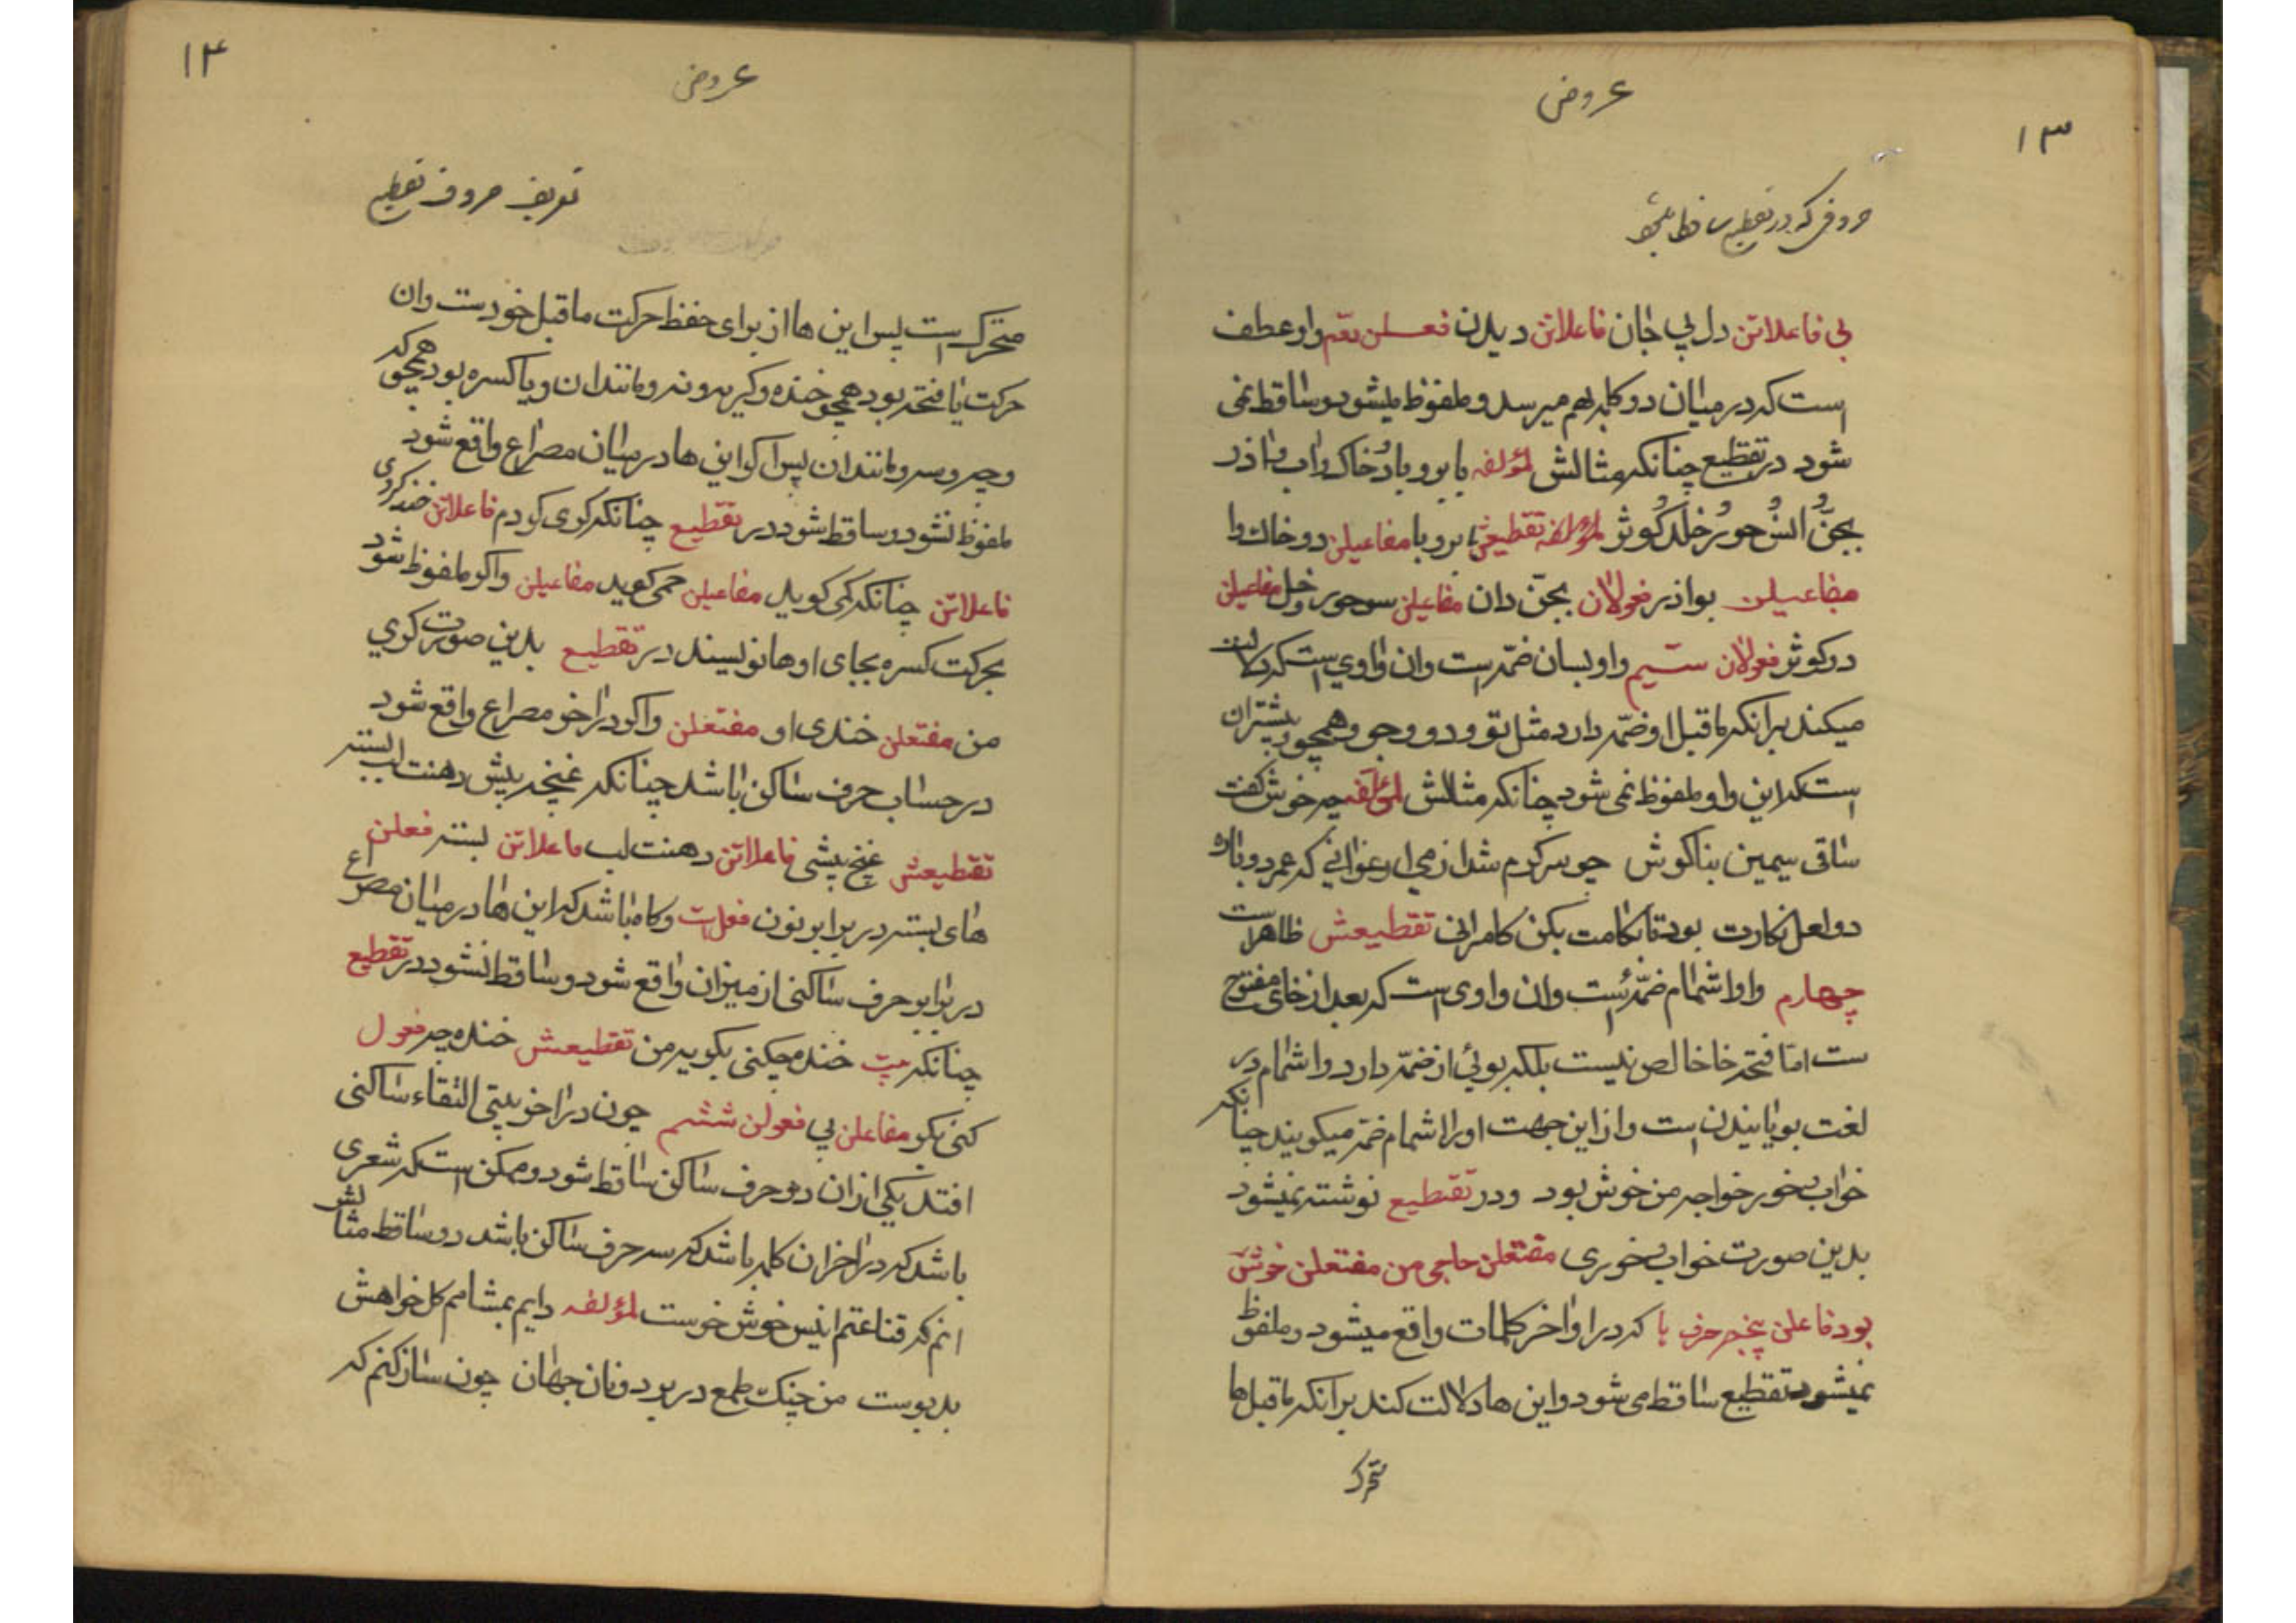 ۱۳
عروض
حروفی که در تقطیع ساقط میشود
بی فاعلاتن دل بی جان فاعلاتن دیدن فعلن واو عطف
است که در میان دو کلمه بهم میرسد و ملفوظ میشود و ساقط نمی
شود در تقطیع چنانکه مثالش لمؤلفه بابر و باد و خاک و اب و اذر
بجنّ و انس و حور و خلد و کوثر لمؤلفه تقطیعش بابر و با مفاعیلن دو خاک وا
مفاعیلن بواذر فعولان بجن دان مفاعیلن سو حور و خل مفاعیلن
دو کوثر فعولان سیم واو لسان ضمّه است وان واوی است که دلالت
میکند برانکه ماقبل او ضمّه دارد مثل تو و دو و جو و همچو و بیشتر ان
است که این واو ملفوظ نمی شود چنانکه مثالش لمؤلفه چه خوش گفت
ساقی سیمین بناکوش چو سرکرم شد از می ارغوانی که عمر دوباره
دو لعل نکارت بود تا بکامت بکن کامرانی تقطیعش ظاهر است
چهارم واو اشمام ضمّه است وان واوی است که بعد از خای مفتوح
ست امّا فتحه خا خالص نیست بلکه بوئی از ضمّه دارد و اشمام در
لغت بویانیدن است و از این جهت او را اشمام ضمّه میکویند چنانکه
خواب بخور خواجه من خوش بود و در تقطیع نوشته نمیشود
بدین صورت خواب بخوری مفتعلن حاجی من مفتعلن خوش
بود فاعلن پنجم حرف ها که در اواخر کلمات واقع میشود و ملفوظ
نمیشود تقطیع ساقط می شود و این ها دلالت کند برانکه ماقبل ها
متحرک
۱۴
عروض
تعریف حروف تقطیع
متحرک است پس این ها از برای حفظ حرکت ماقبل خودست وان
حرکت یا فتحه بود همچو خنده و کریه و نه و مانند ان و یا کسره بود همچو که
و چه و سه و مانند ان پس اکر این ها در میان مصراع واقع شود
ملفوظ نشود و ساقط شود در تقطیع چنانکه کری کردم فاعلاتن خند کردی
فاعلاتن چنانکه کمی کوید مفاعیلن چمی کوید مفاعیلن واکر ملفوظ شود
بحرکت کسره بجای او ها نویسند در تقطیع بدین صورت کری
من مفتعلن خندی او مفتعلن واکر در اخر مصراع واقع شود
در حساب حرف ساکن باشد چنانکه غنچه پیش دهنت لب بسته
تقطیعش غنچ پیشی فاعلاتن دهنت لب فاعلاتن بسته فعلن
های بسته در برابر نون فعلن است و کاه باشد که این ها در میان مصراع
در برابر حرف ساکنی از میزان واقع شود و ساقط نشود در تقطیع
چنانکه خنده چکنی بکویه من تقطیعش خنده چه فعول
کنی بکو مفاعلن بی فعولن ششم چون در اخر بیتی التقاء ساکنی
افتد یکی از ان دو حرف ساکن ساقط شود و ممکن است که شعری
باشد که در اخر ان کلمه باشد که سه حرف ساکن باشد دو ساقط مثالش
انم که قناعتم انیس خوش خوست لمؤلفه دایم بمشامم کل خواهش
بدبوست من چنک طمع در بر دونان جهان چون ساز کنم که